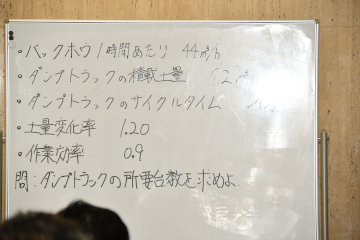 ・バックホウ1時間あたり 44m³/h
・ダンプトラックの積載土量
・ダンプトラックのサイクルタイム
・土量変化率 1.20
・作業効率 0.9
問：ダンプトラックの所要台数を求めよ